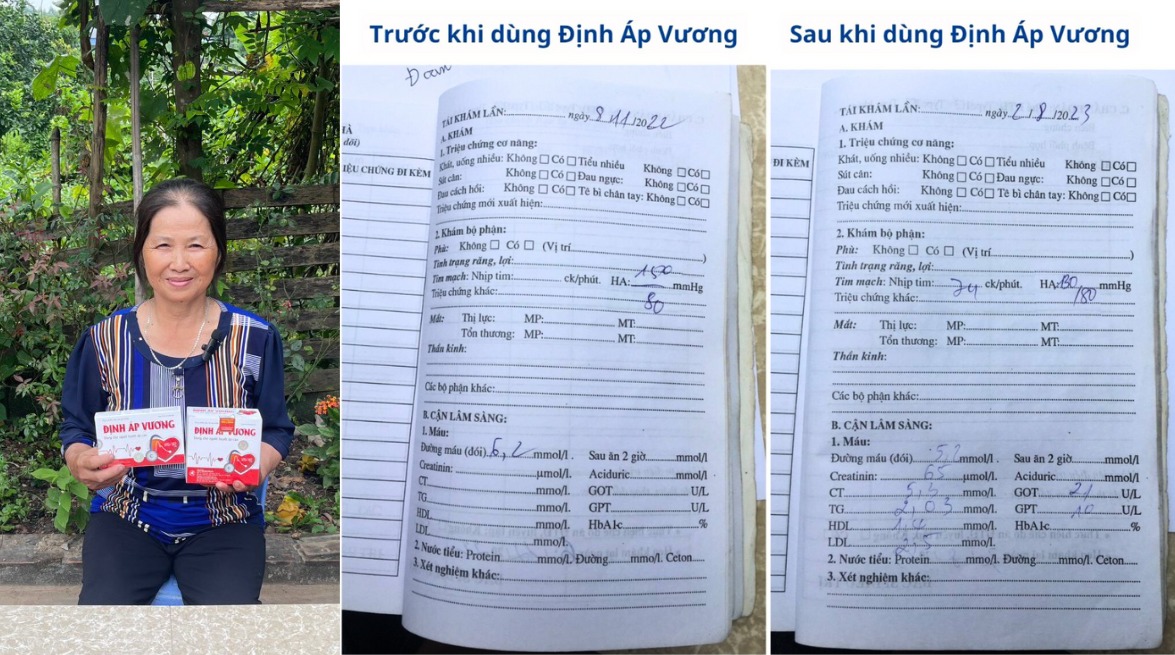 Trước khi dùng Định Áp Vương
Sau khi dùng Định Áp Vương
ĐỊNH ÁP VƯƠNG
ĐỊNH ÁP VƯƠNG
Đoan
IỆU CHỨNG ĐI KÈM
TÁI KHÁM LẦN:.................... ngày 8/11/2022
A. KHÁM
1. Triệu chứng cơ năng:
Khát, uống nhiều: Không ☐ Có ☐ Tiểu nhiều Không ☐ Có ☐
Sút cân: Không ☐ Có ☐ Đau ngực: Không ☐ Có ☐
Đau cách hồi: Không ☐ Có ☐ Tê bì chân tay: Không ☐ Có ☐
Triệu chứng mới xuất hiện:
2. Khám bộ phận:
Phù: Không ☐ Có ☐ (Vị trí....................)
Tình trạng răng, lợi:
Tim mạch: Nhịp tim:............ ck/phút. HA: mmHg
80
Triệu chứng khác:
Mắt: Thị lực: MP:............ MT:
Tổn thương: MP:............ MT:
Thần kinh:
Các bộ phận khác:
B. CẬN LÂM SÀNG:
1. Máu:
Đường máu (đói)..6,2..mmol/l . Sau ăn 2 giờ..........mmol/l
Creatinin: ..........µmol/l. Aciduric..........mmol/l
CT..........mmo/l. GOT..........U/L
TG..........mmo/l. GPT..........U/L
HDL..........mmo/l. HbA1c..........%
LDL..........mmo/l.
2. Nước tiểu: Protein..........mmo/l. Đường......mmo/l. Ceton......
3. Xét nghiệm khác:
ĐI KÈM
TÁI KHÁM LẦN:.................... ngày 2/8/2023
A. KHÁM
1. Triệu chứng cơ năng:
Khát, uống nhiều: Không ☐ Có ☐ Tiểu nhiều Không ☐ Có ☐
Sút cân: Không ☐ Có ☐ Đau ngực: Không ☐ Có ☐
Đau cách hồi: Không ☐ Có ☐ Tê bì chân tay: Không ☐ Có ☐
Triệu chứng mới xuất hiện:
2. Khám bộ phận:
Phù: Không ☐ Có ☐ (Vị trí....................)
Tình trạng răng, lợi:
Tim mạch: Nhịp tim: 74 ck/phút. HA: /80 mmHg
Triệu chứng khác:
Mắt: Thị lực: MP:............ MT:
Tổn thương: MP:............ MT:
Thần kinh:
Các bộ phận khác:
B. CẬN LÂM SÀNG:
1. Máu:
Đường máu (đói)..........mmol/l . Sau ăn 2 giờ..........mmol/l
Creatinin: 65 µmol/l. Aciduric..........mmol/l
CT 5,5 mmo/l. GOT 21 U/L
TG 2,03 mmo/l. GPT 10 U/L
HDL 1,4 mmo/l. HbA1c..........%
LDL 2,5 mmo/l.
2. Nước tiểu: Protein..........mmo/l. Đường......mmo/l. Ceton......
3. Xét nghiệm khác: